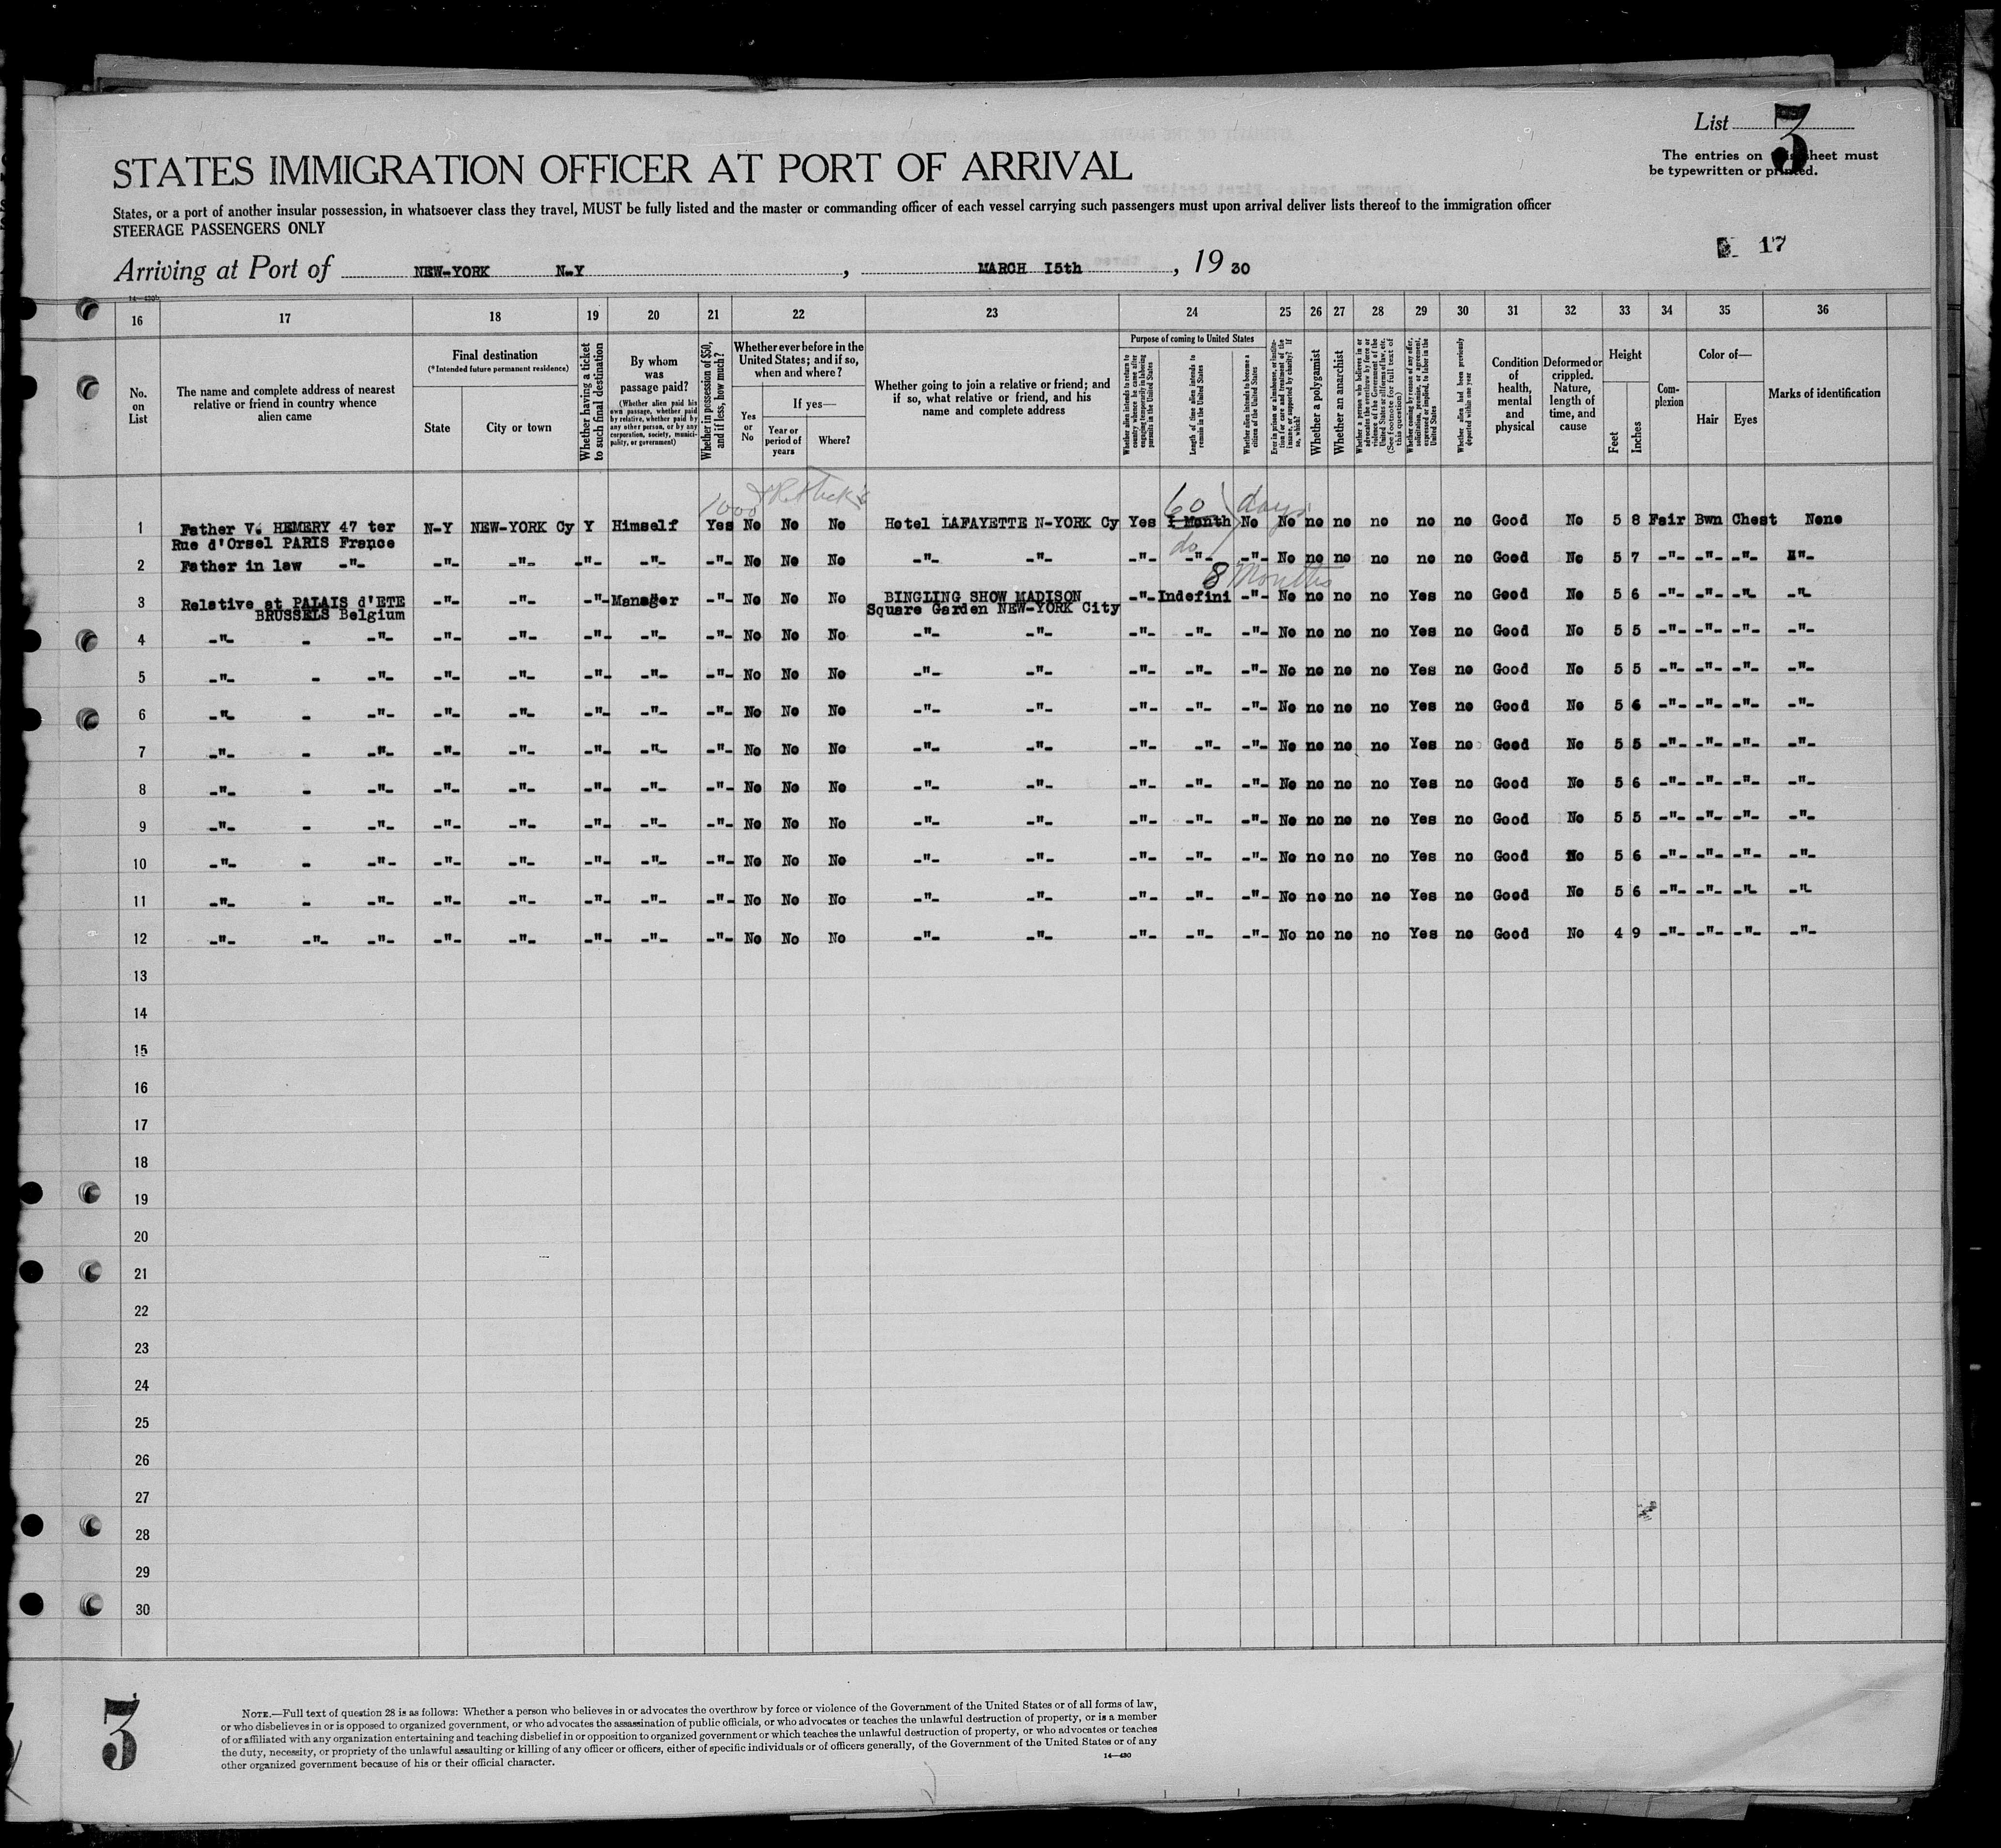 List 3
The entries on this sheet must
be typewritten or printed.
STATES IMMIGRATION OFFICER AT PORT OF ARRIVAL
States, or a port of another insular possession, in whatsoever class they travel, MUST be fully listed and the master or commanding officer of each vessel carrying such passengers must upon arrival deliver lists thereof to the immigration officer
STEERAGE PASSENGERS ONLY
17
Arriving at Port of NEW-YORK N-Y , MARCH 15th , 19 30
16 17 18 19 20 21 22 23 24 25 26 27 28 29 30 31 32 33 34 35 36
No. on List
The name and complete address of nearest relative or friend in country whence alien came
Final destination
(*Intended future permanent residence)
State
City or town
Whether having a ticket to such final destination
By whom was passage paid?
(Whether alien paid his own passage, whether paid by relative, whether paid by any other person, or by any corporation, society, municipality, or government)
Whether in possession of $50, and if less, how much?
Whether ever before in the United States; and if so, when and where?
Yes or No
If yes—
Year or period of years
Where?
Whether going to join a relative or friend; and if so, what relative or friend, and his name and complete address
Purpose of coming to United States
Whether alien intends to return to country whence he came after engaging temporarily in laboring pursuits in the United States
Length of time alien intends to remain in the United States
Whether alien intends to become a citizen of the United States
Ever in prison or almshouse, or institution for care and treatment of the insane, or supported by charity? If so, which?
Whether a polygamist
Whether an anarchist
Whether a person who believes in or advocates the overthrow by force or violence of the Government of the United States or all forms of law, etc. (See footnote for full text of this question)
Whether coming by reason of any offer, solicitation, promise, or agreement, expressed or implied, to labor in the United States
Whether alien had been previously deported within one year
Condition of health, mental and physical
Deformed or crippled. Nature, length of time, and cause
Height
Feet
Inches
Complexion
Color of—
Hair
Eyes
Marks of identification
1000 60 days
1 Father V. HEMERY 47 ter N-Y NEW-YORK Cy Y Himself Yes No No No Hotel LAFAYETTE N-YORK Cy Yes 1 Month No No no no no no no Good No 5 8 Fair Bwn Chest None
Rue d'Orsel PARIS France
do
2 Father in law -"- -"- -"- -"- -"- -"- No No No -"- -"- -"- -"- -"- No no no no no no Good No 5 7 -"- -"- -"- -"-
8 Months
3 Relative at PALAIS d'ETE -"- -"- -"- Manager -"- No No No BINGLING SHOW MADISON -"- Indefini -"- No no no no Yes no Good No 5 6 -"- -"- -"- -"-
BRUSSELS Belgium Square Garden NEW-YORK City
4 -"- - -"- -"- -"- -"- -"- -"- No No No -"- -"- -"- -"- -"- No no no no Yes no Good No 5 5 -"- -"- -"- -"-
5 -"- - -"- -"- -"- -"- -"- -"- No No No -"- -"- -"- -"- -"- No no no no Yes no Good No 5 5 -"- -"- -"- -"-
6 -"- - -"- -"- -"- -"- -"- -"- No No No -"- -"- -"- -"- -"- No no no no Yes no Good No 5 6 -"- -"- -"- -"-
7 -"- - -"- -"- -"- -"- -"- -"- No No No -"- -"- -"- -"- -"- No no no no Yes no Good No 5 5 -"- -"- -"- -"-
8 -"- - -"- -"- -"- -"- -"- -"- No No No -"- -"- -"- -"- -"- No no no no Yes no Good No 5 6 -"- -"- -"- -"-
9 -"- - -"- -"- -"- -"- -"- -"- No No No -"- -"- -"- -"- -"- No no no no Yes no Good No 5 5 -"- -"- -"- -"-
10 -"- - -"- -"- -"- -"- -"- -"- No No No -"- -"- -"- -"- -"- No no no no Yes no Good No 5 6 -"- -"- -"- -"-
11 -"- - -"- -"- -"- -"- -"- -"- No No No -"- -"- -"- -"- -"- No no no no Yes no Good No 5 6 -"- -"- -"- -"-
12 -"- -"- -"- -"- -"- -"- -"- -"- No No No -"- -"- -"- -"- -"- No no no no Yes no Good No 4 9 -"- -"- -"- -"-
13
14
15
16
17
18
19
20
21
22
23
24
25
26
27
28
29
30
3
NOTE.—Full text of question 28 is as follows: Whether a person who believes in or advocates the overthrow by force or violence of the Government of the United States or of all forms of law,
or who disbelieves in or is opposed to organized government, or who advocates the assassination of public officials, or who advocates or teaches the unlawful destruction of property, or is a member
of or affiliated with any organization entertaining and teaching disbelief in or opposition to organized government or which teaches the unlawful destruction of property, or who advocates or teaches
the duty, necessity, or propriety of the unlawful assaulting or killing of any officer or officers, either of specific individuals or of officers generally, of the Government of the United States or of any
other organized government because of his or their official character.
14—430